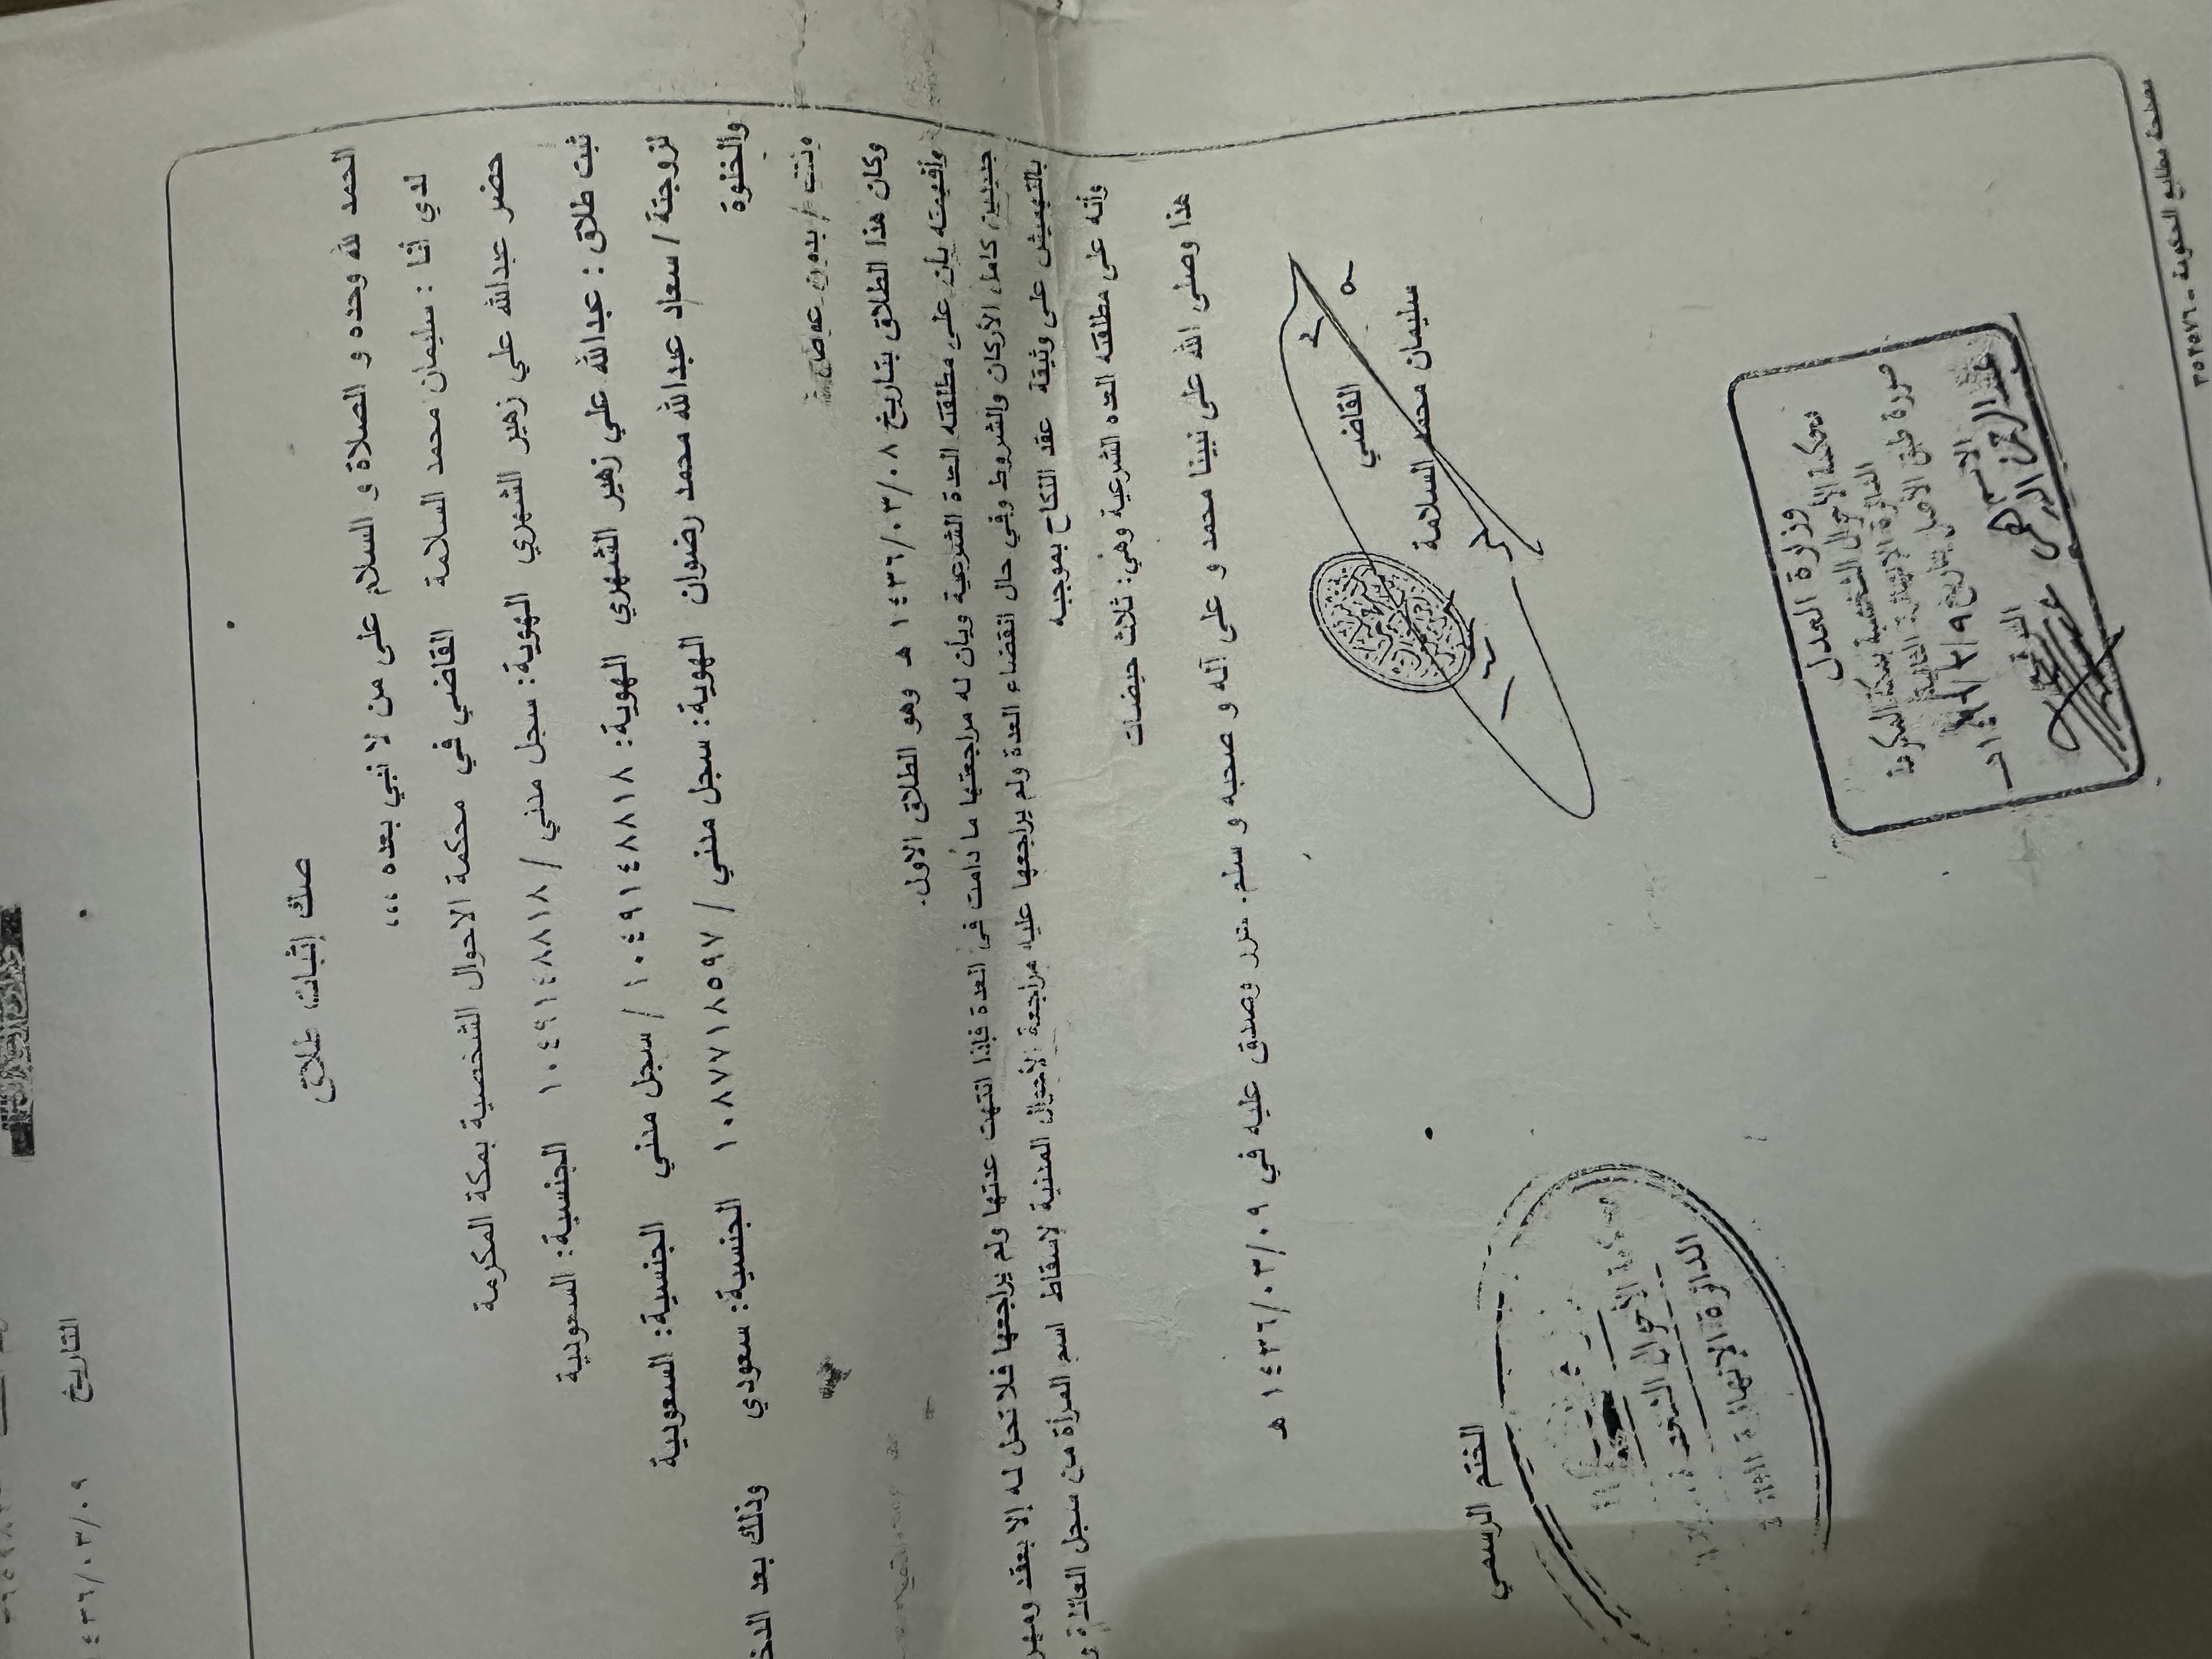 التاريخ ٤٣٦/٠٣/٠٩
صك إثبات طلاق
الحمد لله وحده و الصلاة و السلام على من لا نبي بعده ،،،
لدي أنا : سليمان محمد السلامة القاضي في محكمة الاحوال الشخصية بمكة المكرمة
حضر عبدالله علي زهير الشهري الهوية: سجل مدني / ١٠٤٩١٤٨٨١٨ الجنسية: السعودية
ثبت طلاق : عبدالله علي زهير الشهري الهوية: ١٠٤٩١٤٨٨٨١٨ / سجل مدني الجنسية: السعودية
لزوجتة / سعاد عبدالله محمد رضوان الهوية: سجل مدني / ١٠٨٧٧١٨٥٩٧ الجنسية: سعودي وذلك بعد الدخ
والخلوة
بدون عوض
وكان هذا الطلاق بتاريخ ١٤٣٦/٠٣/٠٨ هـ وهو الطلاق الاول.
وأفهمته بأن على مطلقته العدة الشرعية وبأن له مراجعتها ما دامت في العدة فإذا انتهت عدتها ولم يراجعها فلا تحل له إلا بعقد ومهر
جديدين كامل الأركان والشروط وفي حال انقضاء العدة ولم يراجعها عليه مراجعة الأحوال المدنية لإسقاط اسم المرأة من سجل العائلة
بالتهميش على وثيقة عقد النكاح بموجبه
وأنه على مطلقته العده الشرعية وهي: ثلاث حيضات
هذا وصلى الله على نبينا محمد و على آله و صحبه و سلم. حرر وصدق عليه في ١٤٣٦/٠٣/٠٩ هـ
القاضي
سليمان محمد السلامة
الختم الرسمي
محكمة الأحوال الشخصية
الدائرة الإنهائية الثالثة
وزارة العدل
محكمة الأحوال الشخصية بمكة المكرمة
الدائرة الإنهائية الثالثة
صورة طبق الأصل بتاريخ
الاسم
التوقيع
مطابع الحكومة - ٣٥٢٥٧٦